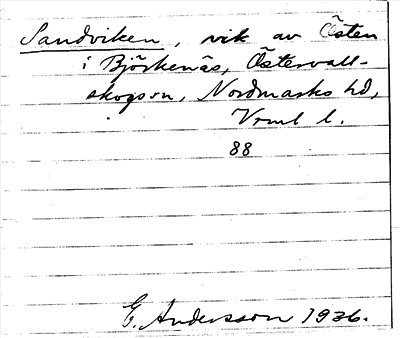 Sandviken, vik av Östen
i Björkenäs, Östervall-
skogs sn, Nordmarks hd,
Vrml l.
88
E. Andersson 1936.